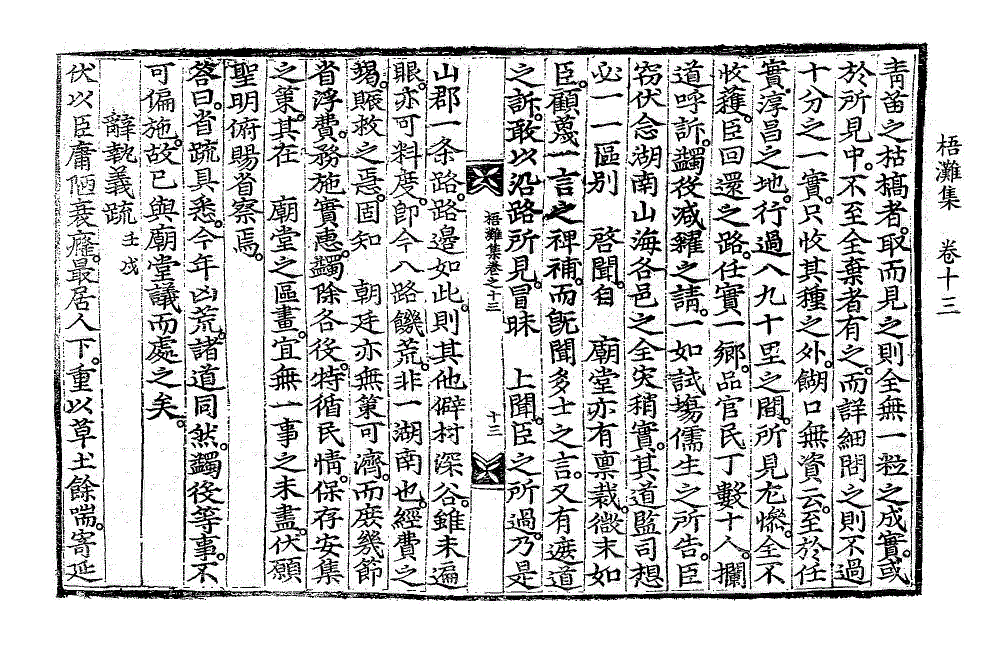 梧灘集 卷十三
靑苗之枯槁者。取而見之則全無一粒之成實。或
於所見中。不至全棄者有之。而詳細問之則不過
十分之一實。只收其種之外。餬口無資云。至於任
實,淳昌之地。行過八九十里之間。所見尤慘。全不
收穫。臣回還之路。任實一鄕。品官民丁數十人。攔
道呼訴。蠲役减糴之請。一如試場儒生之所告。臣
窃伏念湖南山海各邑之全灾稍實。其道監司想
必一一區別 啓聞。自 廟堂亦有禀裁。微末如
臣。顧蔑一言之裨補。而旣聞多士之言。又有遮道
之訴。敢以沿路所見。冒昧 上聞。臣之所過。乃是
梧灘集卷之十三 十三
山郡一条路。路邊如此。則其他僻村深谷。雖未遍
眼。亦可料度。卽今八路饑荒。非一湖南也。經費之
竭。賑救之焉。固知 朝廷亦無策可濟。而庶幾節
省浮費。務施實惠。蠲除各役。特循民情。保存安集
之策。其在 廟堂之區畫。宜無一事之未盡。伏願
聖明俯賜省察焉。
答曰。省疏具悉。今年凶荒。諸道同然。蠲役等事。不
可偏施。故已與廟堂議而處之矣。
辭執義疏 壬戌
伏以臣庸陋衰癃。最居人下。重以草土餘喘。寄延